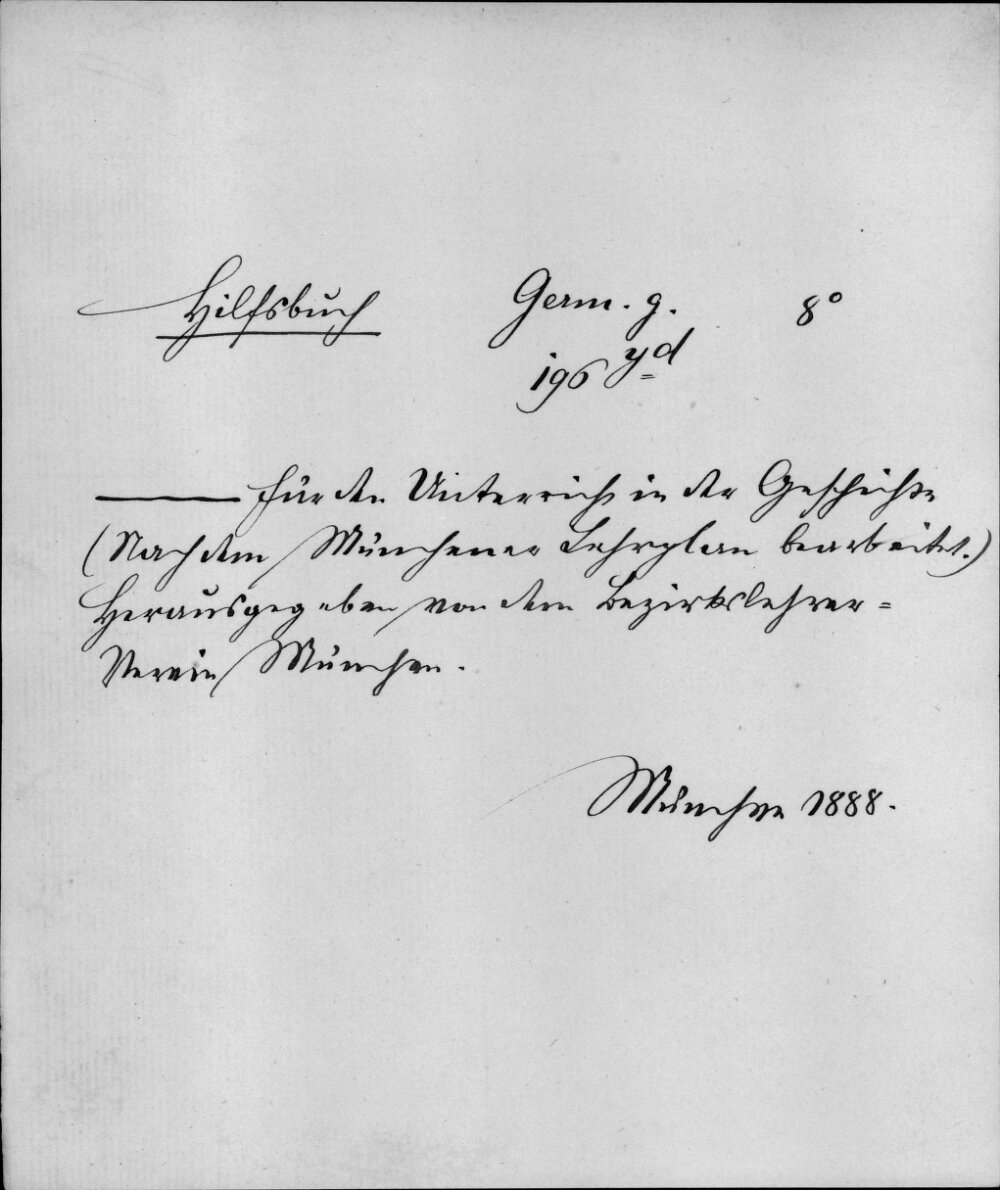 Hilfsbuch Germ. g. 8°
196 yd
——— für den Unterricht in der Geschichte
(Nach dem Münchener Lehrplan bearbeitet.)
Herausgegeben von dem Bezirkslehrer=
Verein München.
München 1888.